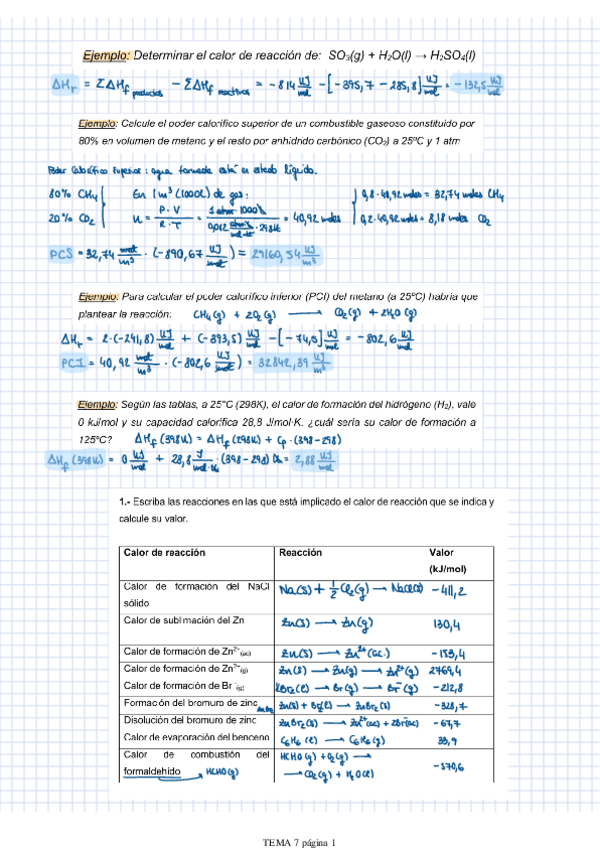 Ejemplo: Determinar el calor de reacción de: SO₃(g) + H₂O(l) → H₂SO₄(l)
ΔHr = ΣΔHf productos − ΣΔHf reactivos = −814 kJ/mol − [−395,7 − 285,8] kJ/mol = −132,5 kJ/mol
Ejemplo: Calcule el poder calorífico superior de un combustible gaseoso constituido por
80% en volumen de metano y el resto por anhídrido carbónico (CO₂) a 25ºC y 1 atm
Poder Calorífico Superior: agua formada está en estado líquido.
80% CH₄
20% CO₂
En 1m³ (1000L) de gas:
n = P·V / R·T = 1 atm · 1000 L / 0,082 atm·L/mol·K · 298K = 40,92 moles
0,8 · 40,92 moles = 32,74 moles CH₄
0,2 · 40,92 moles = 8,18 moles CO₂
PCS = 32,74 mol/m³ · (−890,67 kJ/mol) = 29160,54 kJ/m³
Ejemplo: Para calcular el poder calorífico inferior (PCI) del metano (a 25ºC) habría que
plantear la reacción: CH₄(g) + 2O₂(g) → CO₂(g) + 2H₂O(g)
ΔHr = 2·(−241,8) kJ/mol + (−393,5) kJ/mol − [−74,5] kJ/mol = −802,6 kJ/mol
PCI = 40,92 mol/m³ · (−802,6 kJ/mol) = 32842,39 kJ/m³
Ejemplo: Según las tablas, a 25ºC (298K), el calor de formación del hidrógeno (H₂), vale
0 kJ/mol y su capacidad calorífica 28,8 J/mol·K. ¿cuál sería su calor de formación a
125ºC? ΔHf (398K) = ΔHf (298K) + Cp · (398−298)
ΔHf (398K) = 0 kJ/mol + 28,8 J/mol·K · (398−298) K = 2,88 kJ/mol
1.- Escriba las reacciones en las que está implicado el calor de reacción que se indica y
calcule su valor.
Calor de reacción Reacción Valor
(kJ/mol)
Calor de formación del NaCl
sólido
Na(s) + ½ Cl₂(g) → NaCl(s) −411,2
Calor de sublimación del Zn Zn(s) → Zn(g) 130,4
Calor de formación de Zn²⁺(ac) Zn(s) → Zn²⁺(ac.) −153,4
Calor de formación de Zn²⁺(g) Zn(s) → Zn(g) → Zn²⁺(g) 2769,4
Calor de formación de Br⁻(g) ½Br₂(l) → Br(g) → Br⁻(g) −212,8
Formación del bromuro de zinc Zn(s) + Br₂(l) → ZnBr₂(s) −328,7
Disolución del bromuro de zinc ZnBr₂(s) → Zn²⁺(ac) + 2Br⁻(ac) −67,7
Calor de evaporación del benceno C₆H₆(l) → C₆H₆(g) 33,9
Calor de combustión del
formaldehído → HCHO(g)
HCHO(g) + O₂(g) →
→ CO₂(g) + H₂O(l) −570,6
TEMA 7 página 1